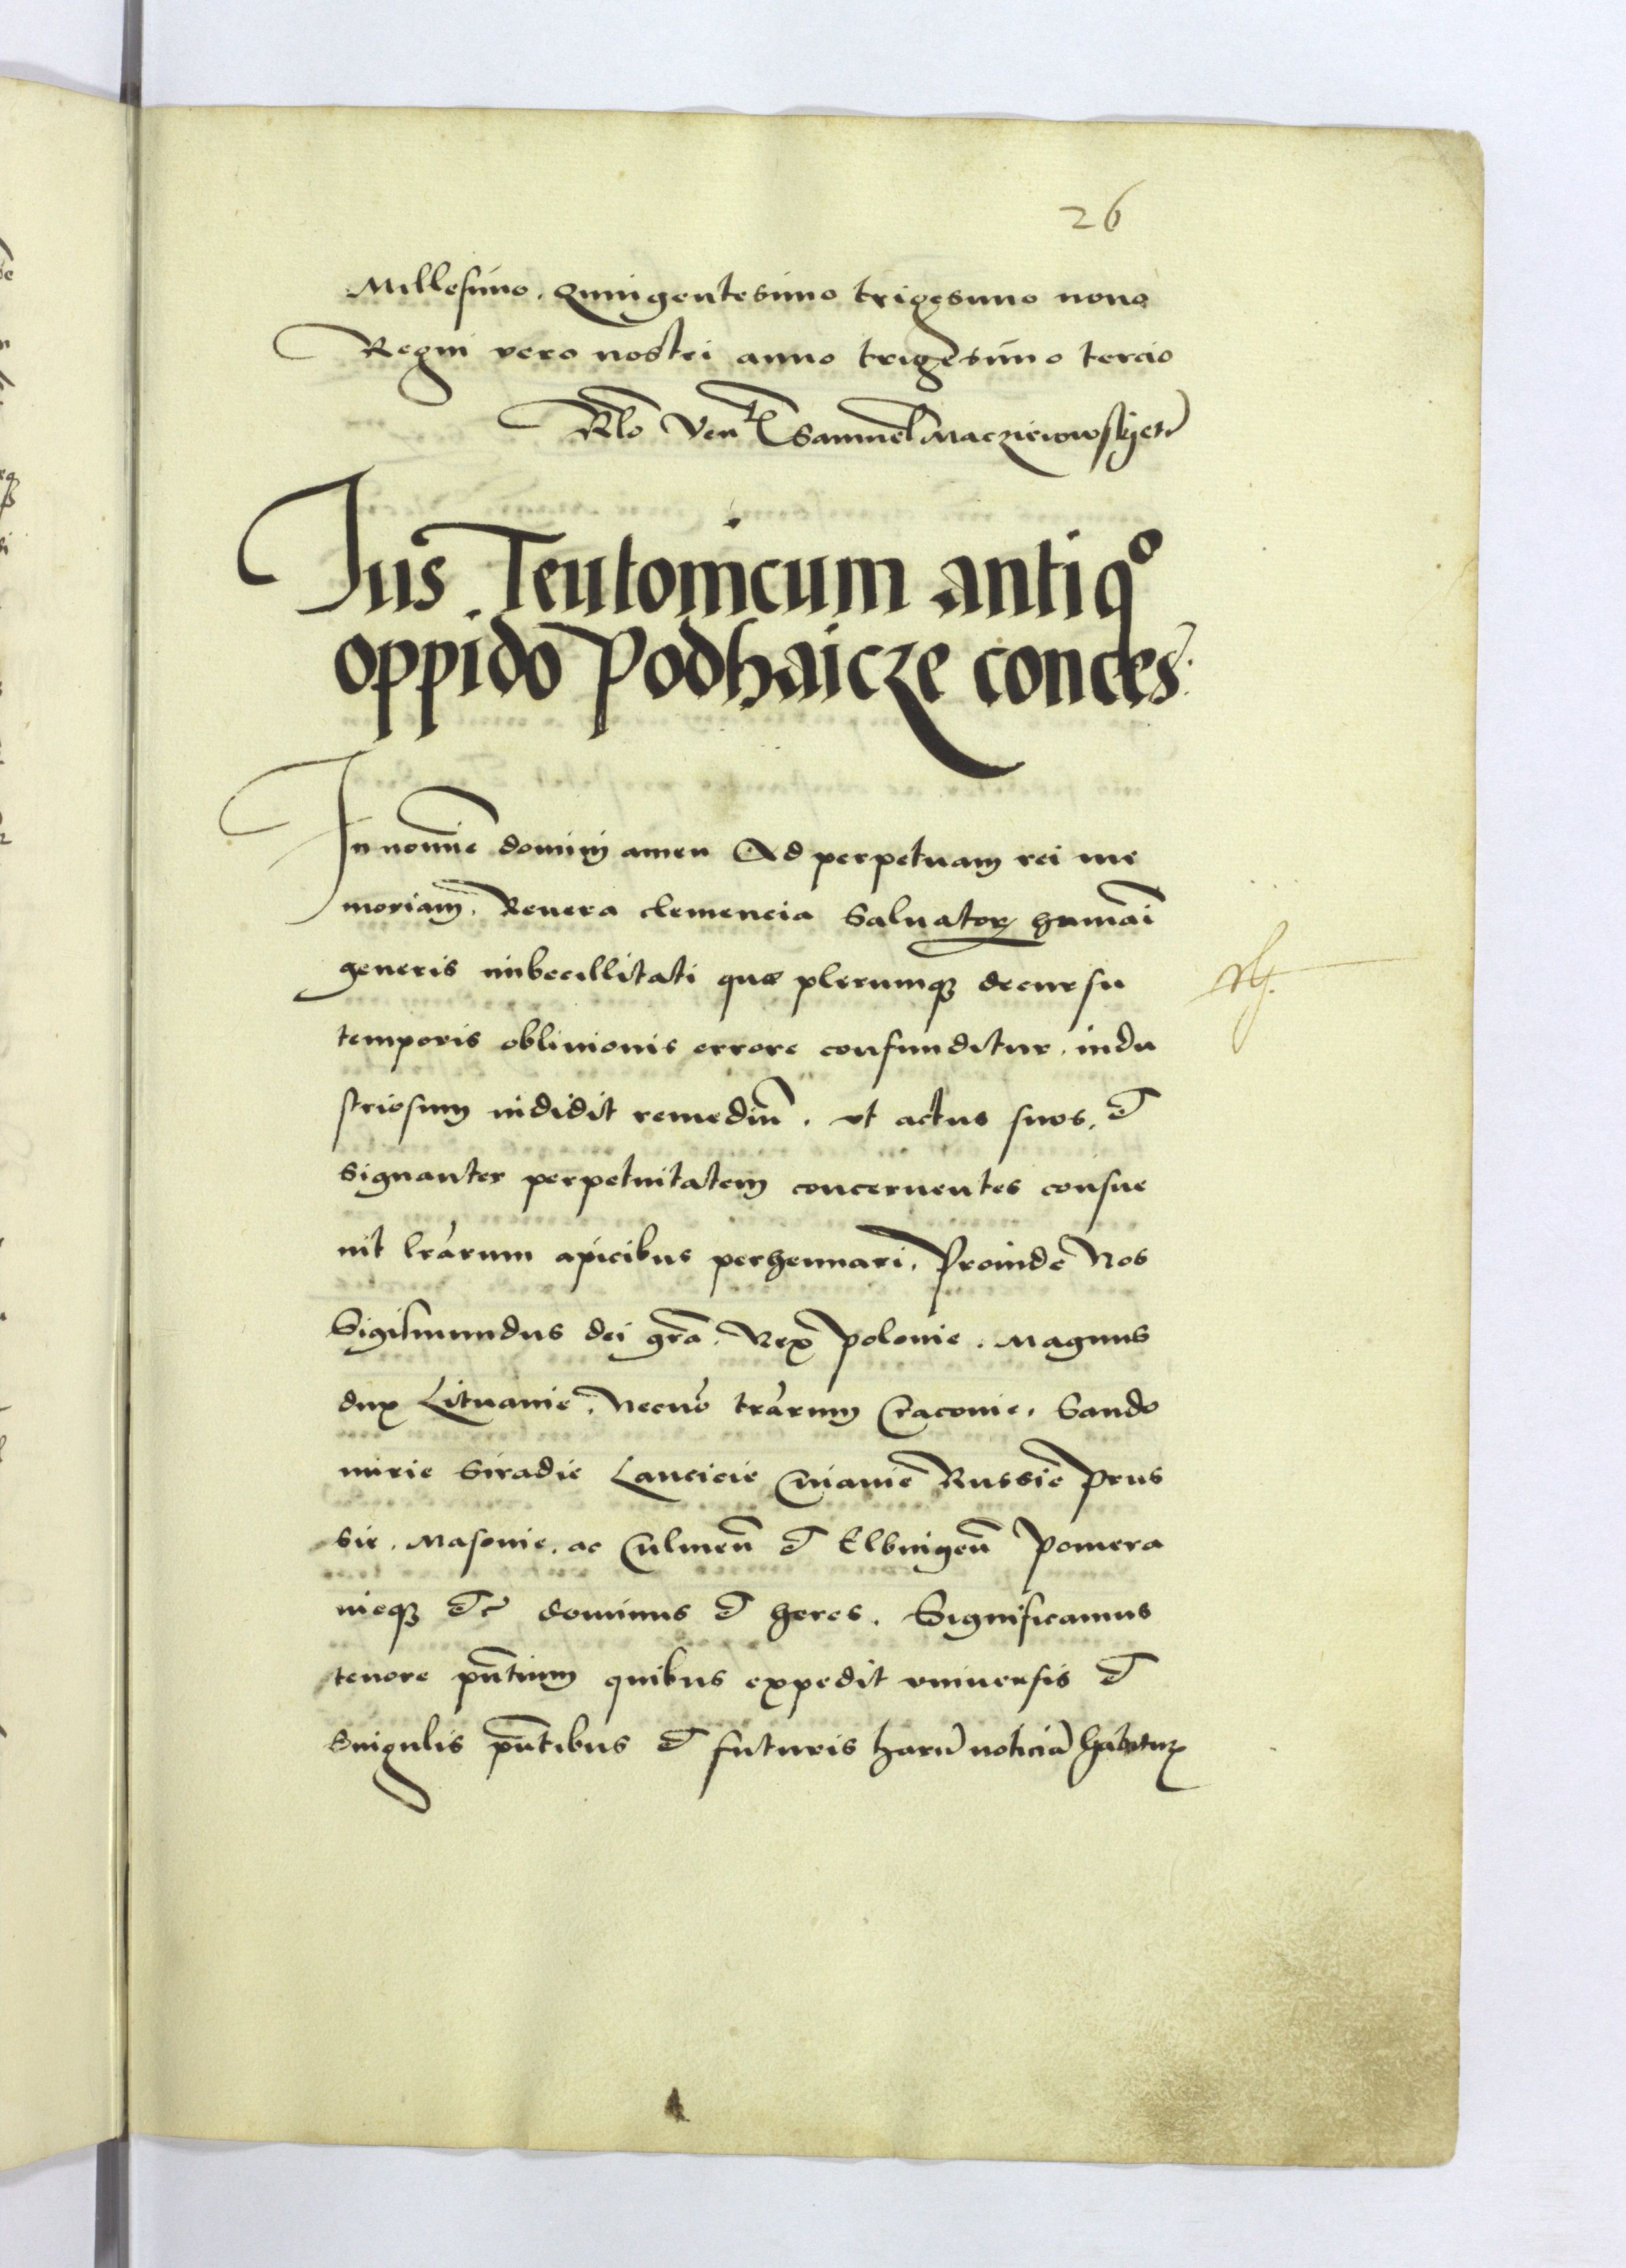 26
Millesimo. Quingentesimo trigesimo nono
Regni vero nostri anno trigesimo tercio
Rlo Ven Samuel Macziewowskj etc
Jus Teutonicum antiqº
oppido Podhaicze conces:
In nomine domini amen Ad perpetuam rei me
moriam. Reuera clemencia Saluatorꝫ humāi
generis imbecillitati quæ plerumqꝫ decursu
temporis obliuionis errore confunditur. indu
striosum indidit remediū. vt actus suos, et
signanter perpetuitatem concernentes consue
uit lrārum apicibus perhennari. Proinde Nos
Sigismundus dei grā. Rex polonie. Magnus
dux Lituanie. Necnō trārum Cracouie. Sando
mirie Siradie Lancicie Cuiauie Russie Prus
sie. Masouie. ac Culmeñ et Elbingeñ Pomera
nieqꝫ etc dominus et heres. Significamus
tenore pñtium quibus expedit vniuersis et
Singulis pñtibus et futuris harū noticiā habiturꝫ